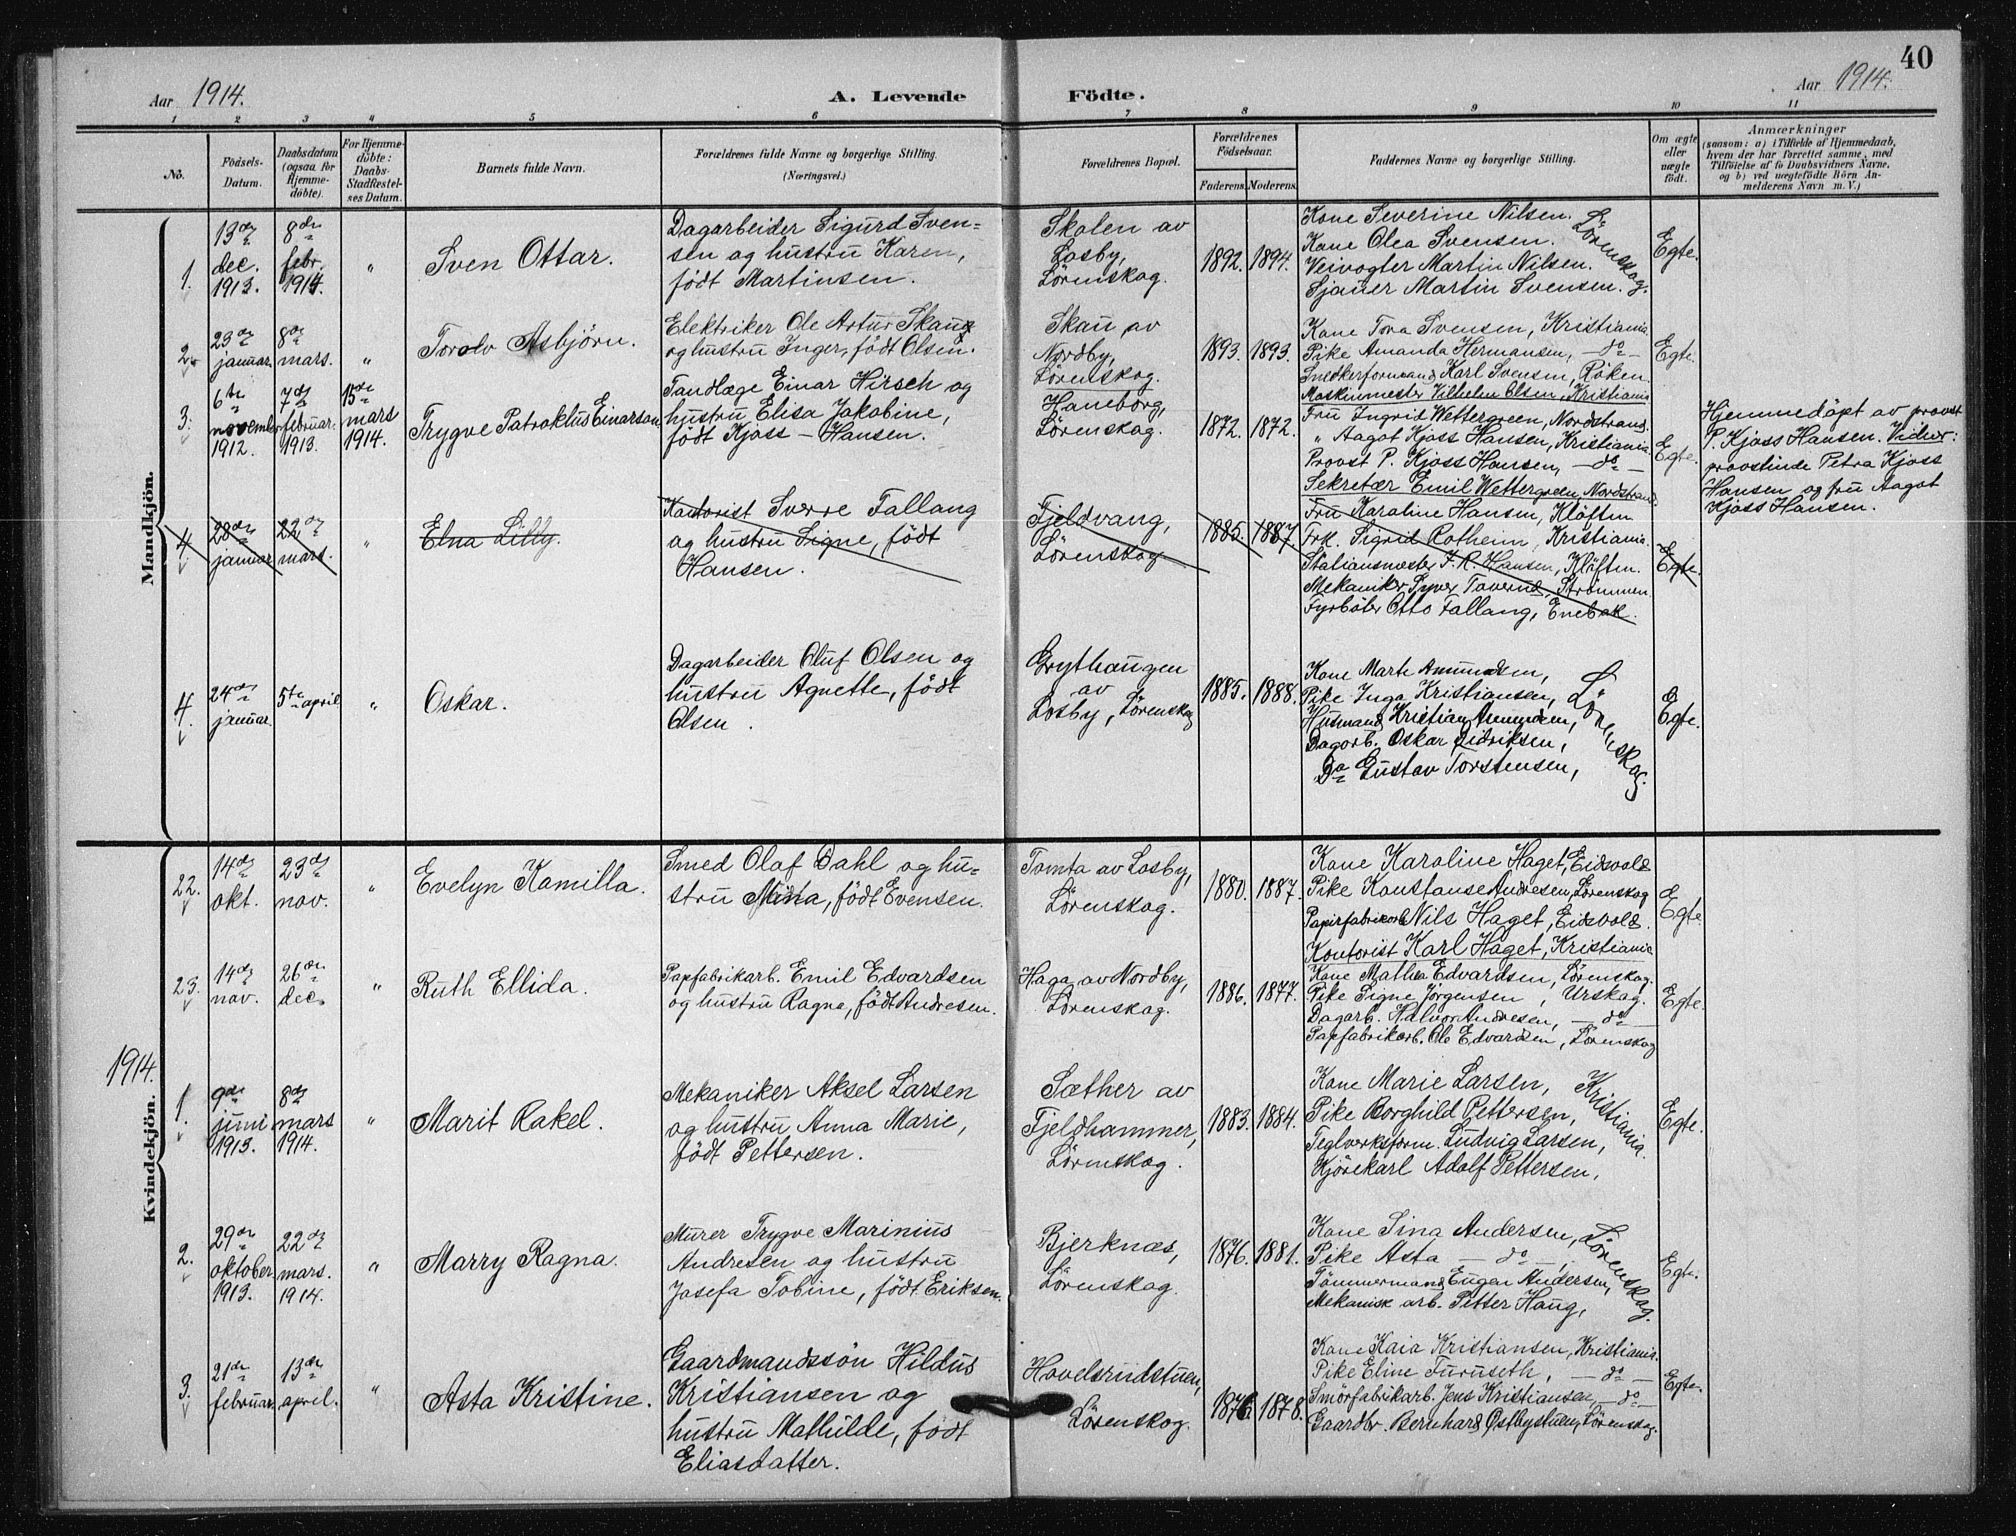 40
Aar 1914.
A. Levende
Födte.
Aar 1914.
1 2 3 4 5 6 7 8 9 10 11
No.
Födsels-
Datum.
Daabsdatum
(ogsaa for
Hjemme-
döbte).
For Hjemme-
döbte:
Daabs-
Stadfæstel-
ses Datum.
Barnets fulde Navn.
Forældrenes fulde Navne og borgerlige Stilling.
(Næringsvei.)
Forældrenes Bopæl.
Forældrenes
Födselsaar.
Faderens. Moderens.
Faddernes Navne og borgerlige Stilling.
Om ægte
eller
uægte
födt.
Anmærkninger
(saasom: a) i Tilfælde af Hjemmedaab,
hvem der har forrettet samme, med
Tilföielse af to Daabsvidners Navne,
og b) ved uægtefödte Börn An-
melderens Navn m. V.)
Mandkjön.
1.
13de
dec.
1913.
8de
febr.
1914.
"
Sven Ottar.
Dagarbeider Sigurd Sven-
sen og hustru Karen,
født Martinsen.
Skolen av
Losby,
Lörenskog.
1892. 1894.
Kone Severine Nilsen.
Kone Olea Svensen.
Veivogter Martin Nilsen.
Sjauer Martin Svensen.
Lörenskog.
Egte.
2.
23de
januar.
8de
mars.
"
Torolv Asbjörn.
Elektriker Ole Artur Skaug
og hustru Inger, født Olsen.
Skau av
Nordby,
Lörenskog.
1893. 1893.
Kone Tora Svensen, Kristiania
Pike Amanda Hermansen, — do —
Snedkerformand Karl Svensen, Röken.
Maskinmester Vilhelm Olsen, Kristiania
Egte.
3.
6te
november
1912.
7de
februar.
1913.
15de
mars
1914.
Trygve Patroklus Einarson
Tandlæge Einar Hirsch og
hustru Elisa Jakobine,
født Kjoss - Hansen.
Haneborg,
Lörenskog.
1872. 1872.
Fru Ingrid Wettergreen, Nordstrand.
" Aagot Kjoss Hansen, Kristiania
Provst P. Kjoss Hansen, — do —
Sekretær Emil Wettergreen, Nordstrand
Egte.
Hjemmedöpt av provst
P. Kjoss Hansen. Vidner:
provstinde Petra Kjoss
Hansen og fru Aagot
Kjoss Hansen.
4
28de
januar
22de
mars.
"
Elna Lilly.
Kontorist Sverre Fallang
og hustru Signe, født
Hansen.
Fjeldvang,
Lörenskog
1885. 1887.
Fru Karoline Hansen, Klöften
Frk. Sigrid Rotheim, Kristiania.
Stationsmester J. R. Hansen, Klöften.
Mekaniker Syver Taverud, Strömmen
Fyrböter Otto Fallang, Enebak.
Egte.
4.
24de
januar.
5te april
"
Oskar.
Dagarbeider Oluf Olsen og
hustru Agnette, født
Olsen.
Grythaugen
av
Losby, Lörenskog
1885. 1888.
Kone Marte Amundsen,
Pike Inga Kristiansen,
Husmand Kristian Amundsen,
Dagarb. Oskar Didriksen,
Do Gustav Torstensen,
Lörenskog.
Egte.
1914.
Kvindekjön.
22.
14de
okt.
23de
nov.
"
Evelyn Kamilla.
Smed Olaf Dahl og hu-
stru Mina, født Evensen.
Tomta av Losby,
Lörenskog.
1880. 1887.
Kone Karoline Haget, Eidsvold
Pike Konstanse Andresen, Lörenskog
Papirfabrikarb. Nils Haget, Eidsvold.
Kontorist Karl Haget, Kristiania
Egte
23.
14de
nov.
26de
dec.
"
Ruth Ellida.
Papfabrikarb. Emil Edvardsen
og hustru Ragna, født Andresen.
Haga av Nordby,
Lörenskog.
1886. 1877.
Kone Mathea Edvardsen, Lörenskog.
Pike Signe Jörgensen, Urskog.
Dagarb. Halvor Andresen, — do —
Papfabrikarb. Ole Edvardsen, Lörenskog
Egte.
1.
9de
juni
1913.
8de
mars
1914.
"
Marit Rakel.
Mekaniker Aksel Larsen
og hustru Anna Marie,
født Pettersen.
Sæther av
Fjeldhammer,
Lörenskog.
1883. 1884.
Kone Marie Larsen,
Pike Borghild Pettersen,
Teglverksform. Ludvig Larsen,
Kjörekarl Adolf Pettersen,
Kristiania.
Egte.
2.
29de
oktober
1913.
22de
mars.
1914.
"
Marry Ragna.
Murer Trygve Marinius
Andresen og hustru
Josefa Tobine, født Eriksen.
Bjerknæs,
Lörenskog.
1876. 1881.
Kone Lina Andersen,
Pike Asta — do —,
Tömmermand Eugen Andersen,
Mekanisk arb. Petter Haug,
Lörenskog.
Egte.
3.
21de
februar.
13de
april.
"
Asta Kristine.
Gaardmandssön Hildus
Kristiansen og
hustru Mathilde, født
Eliasdatter.
Hovelsrudstuen,
Lörenskog.
1876. 1878.
Kone Kaia Kristiansen, Kristiania.
Pike Eline Furuseth, — do —
Smörfabrikarb. Jens Kristiansen, — do —
Gaardbr. Bernhard Östbystuen, Lörenskog.
Egte.